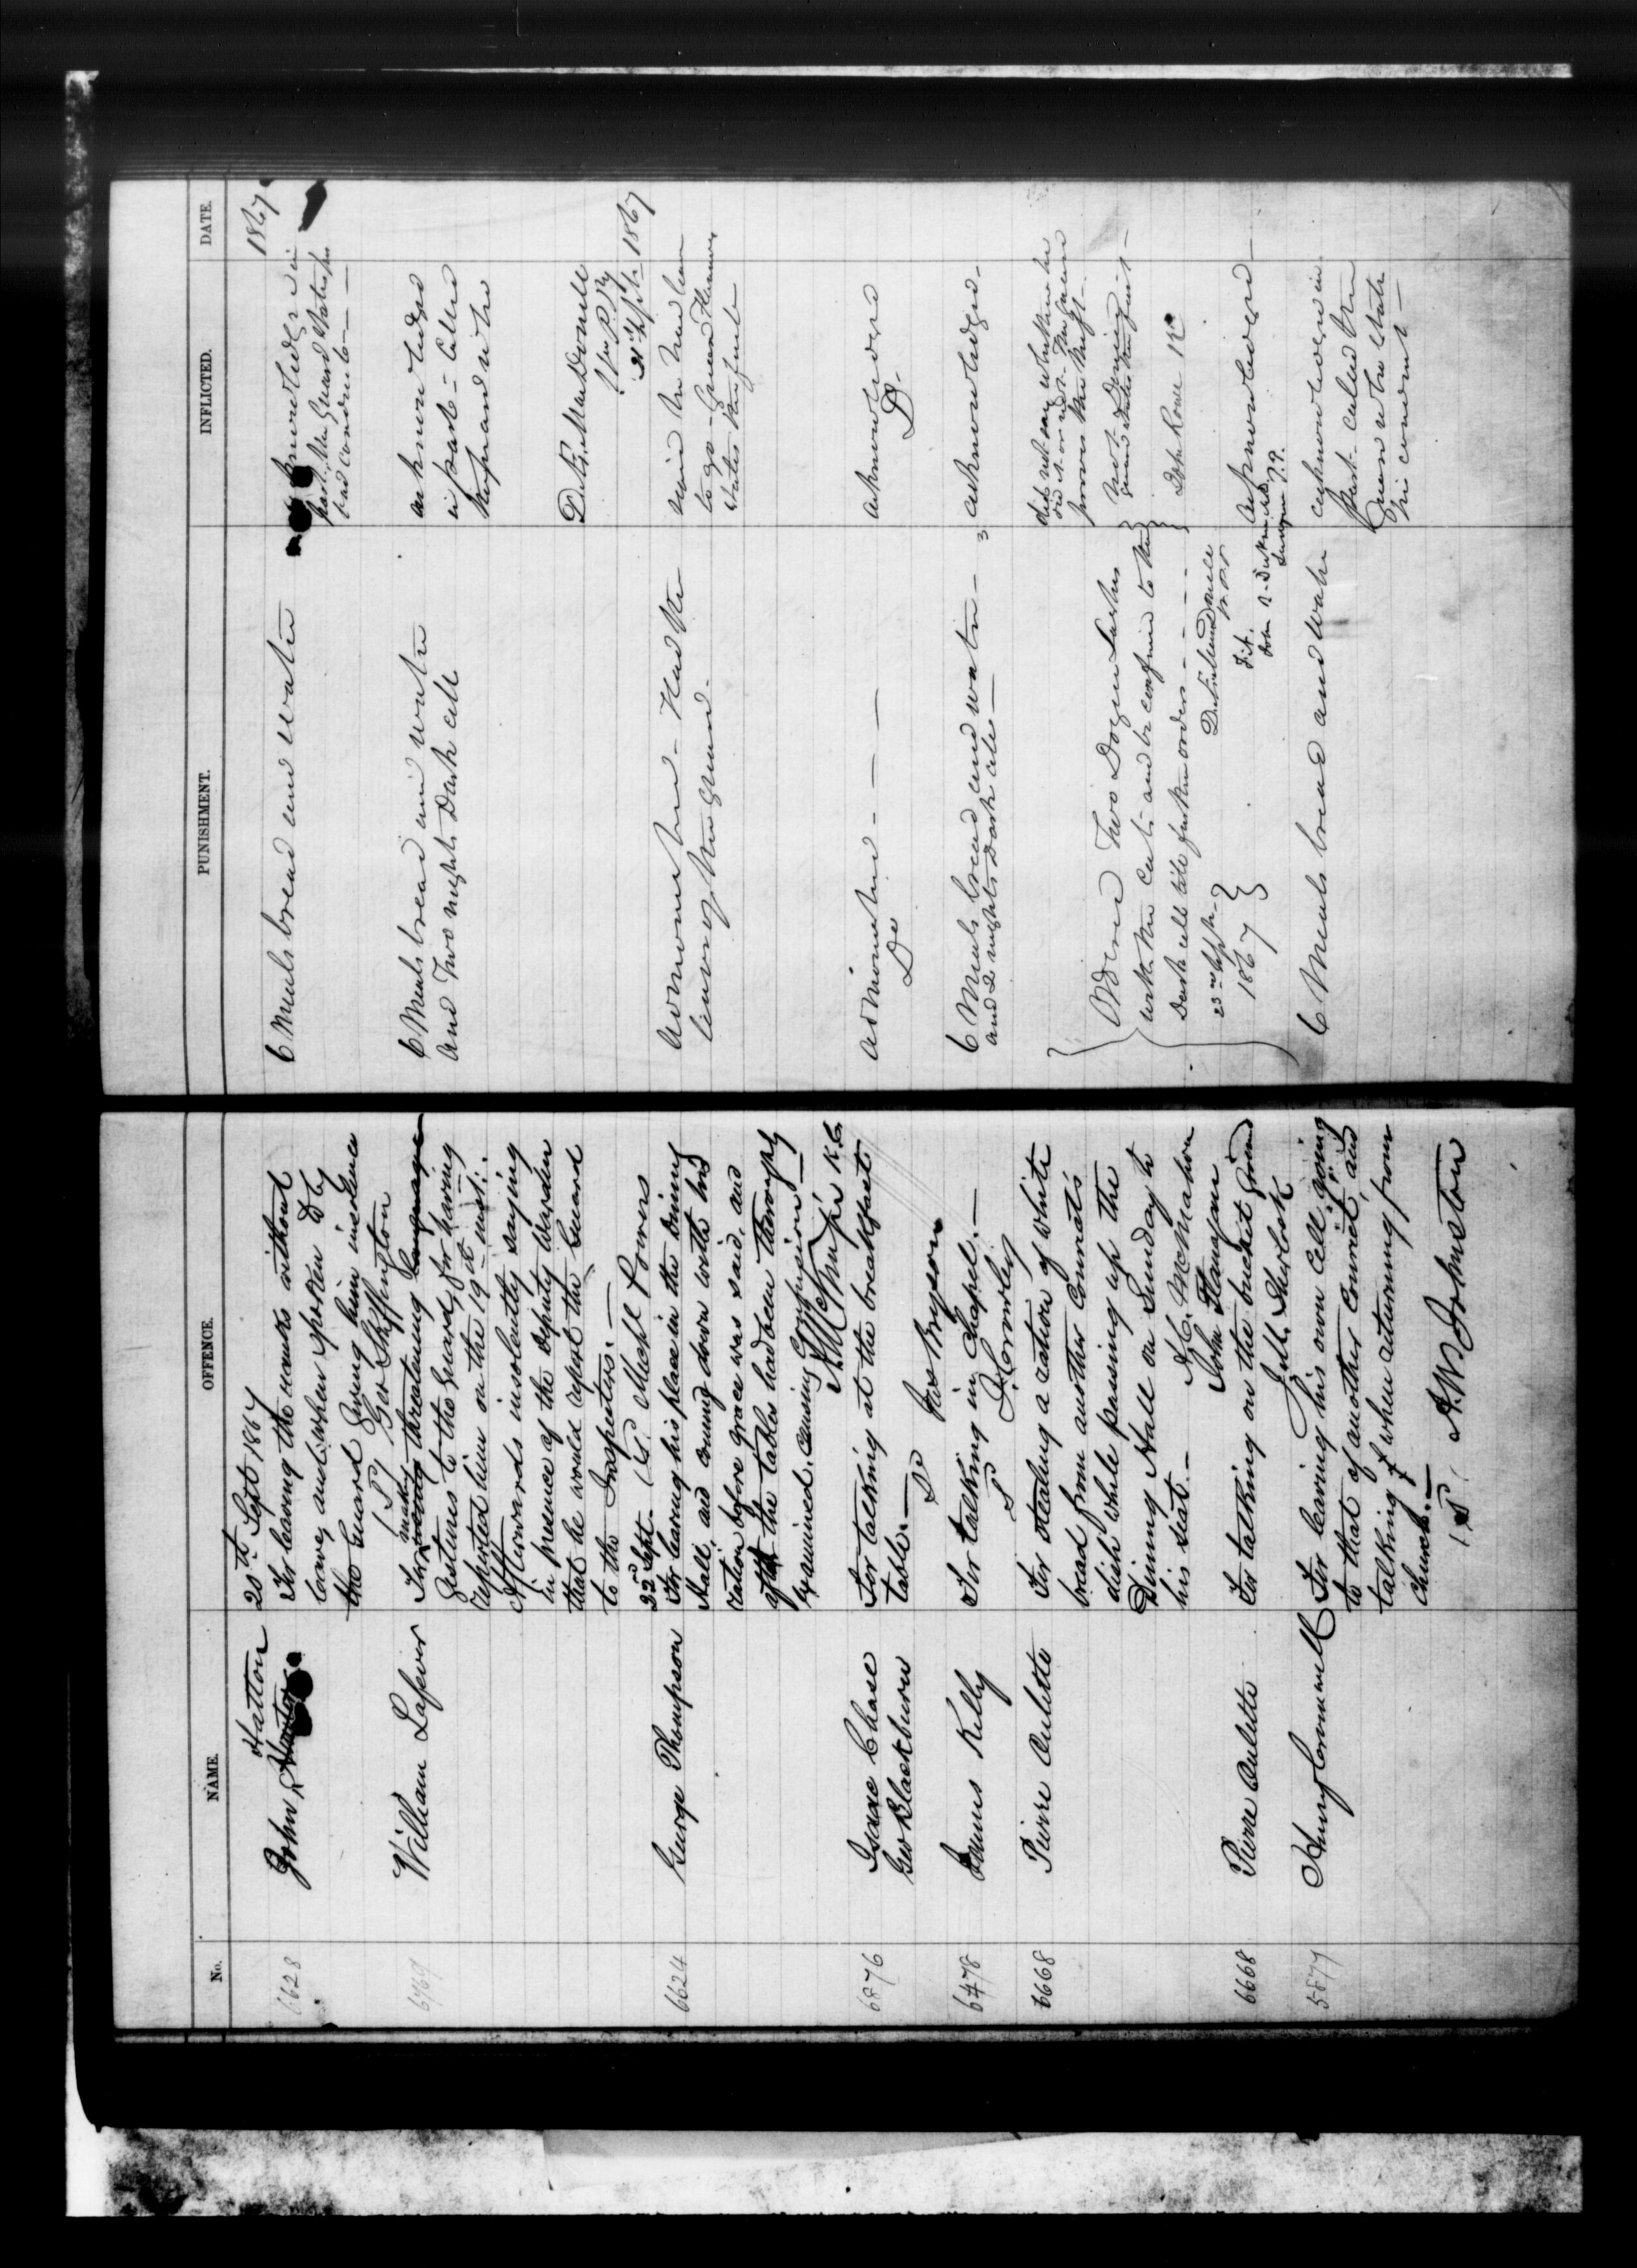 No. NAME. OFFENCE.
20th Sept 1867
6628 John Hatton
For leaving the ranks without
leave, and when spoken to by
the Guard giving him insolence
Geo Skiffington
6769 William Lafever
For making threatening
gestures to the Guard, for having
reported him on the 19th inst:.
Afterwards insolently saying
in presence of the Deputy Warden
that he would report the Guard
to the Inspectors.—
Michl Powers
22nd Sept.
6624 George Thompson
For leaving his place in the Dining
Hall, and coming down with his
ration before grace was said, and
after the tables had been thoroughly
examined, causing Confusion—
K.C.
6876 Isaac Chase
Geo Blackburn
For talking at the breakfast
table.—
Do
Jas Bryson
6478 James Kelly
For talking in Chapel.—
T. Crowley
6668 Pierre Oulette
For stealing a ration of white
bread from another Convict's
dish while passing up the
Dining Hall on Sunday to
his seat.—
McMahon
John Flanagan
6668 Pierre Oulette
For talking on the bucket Ground
Sherlock
5877 Henry Cornwall
For leaving his own Cell, going
to that of another Convict, and
talking, when returning from
Church.—
A. W. Johnston
PUNISHMENT. INFLICTED. DATE.
1867
6 Meals bread and water
acknowledged in
part. The Guard states his
bad conduct—
6 Meals bread and water
and Two nights Dark cell
acknowledged
in part - Called
D. Æ. MacDonell
21st Septr 1867
Admonished - Had the
leave of the Guard -
said he had leave
to go - Guard
states
admonished - — —
Do
acknowledged
D.
6 Meals bread and water —
and 2 nights Dark cell —
acknowledged -
Did not say whether he
did it or not. The Guard
proves the theft —
Ordered Two Dozen Lashes
with the Cats and be confined to the
Dark cell till further orders - - - -
23rd Septr
1867
acknowledged —
6 Meals bread and water
acknowledged in
part - called the
Guard who states
his conduct —